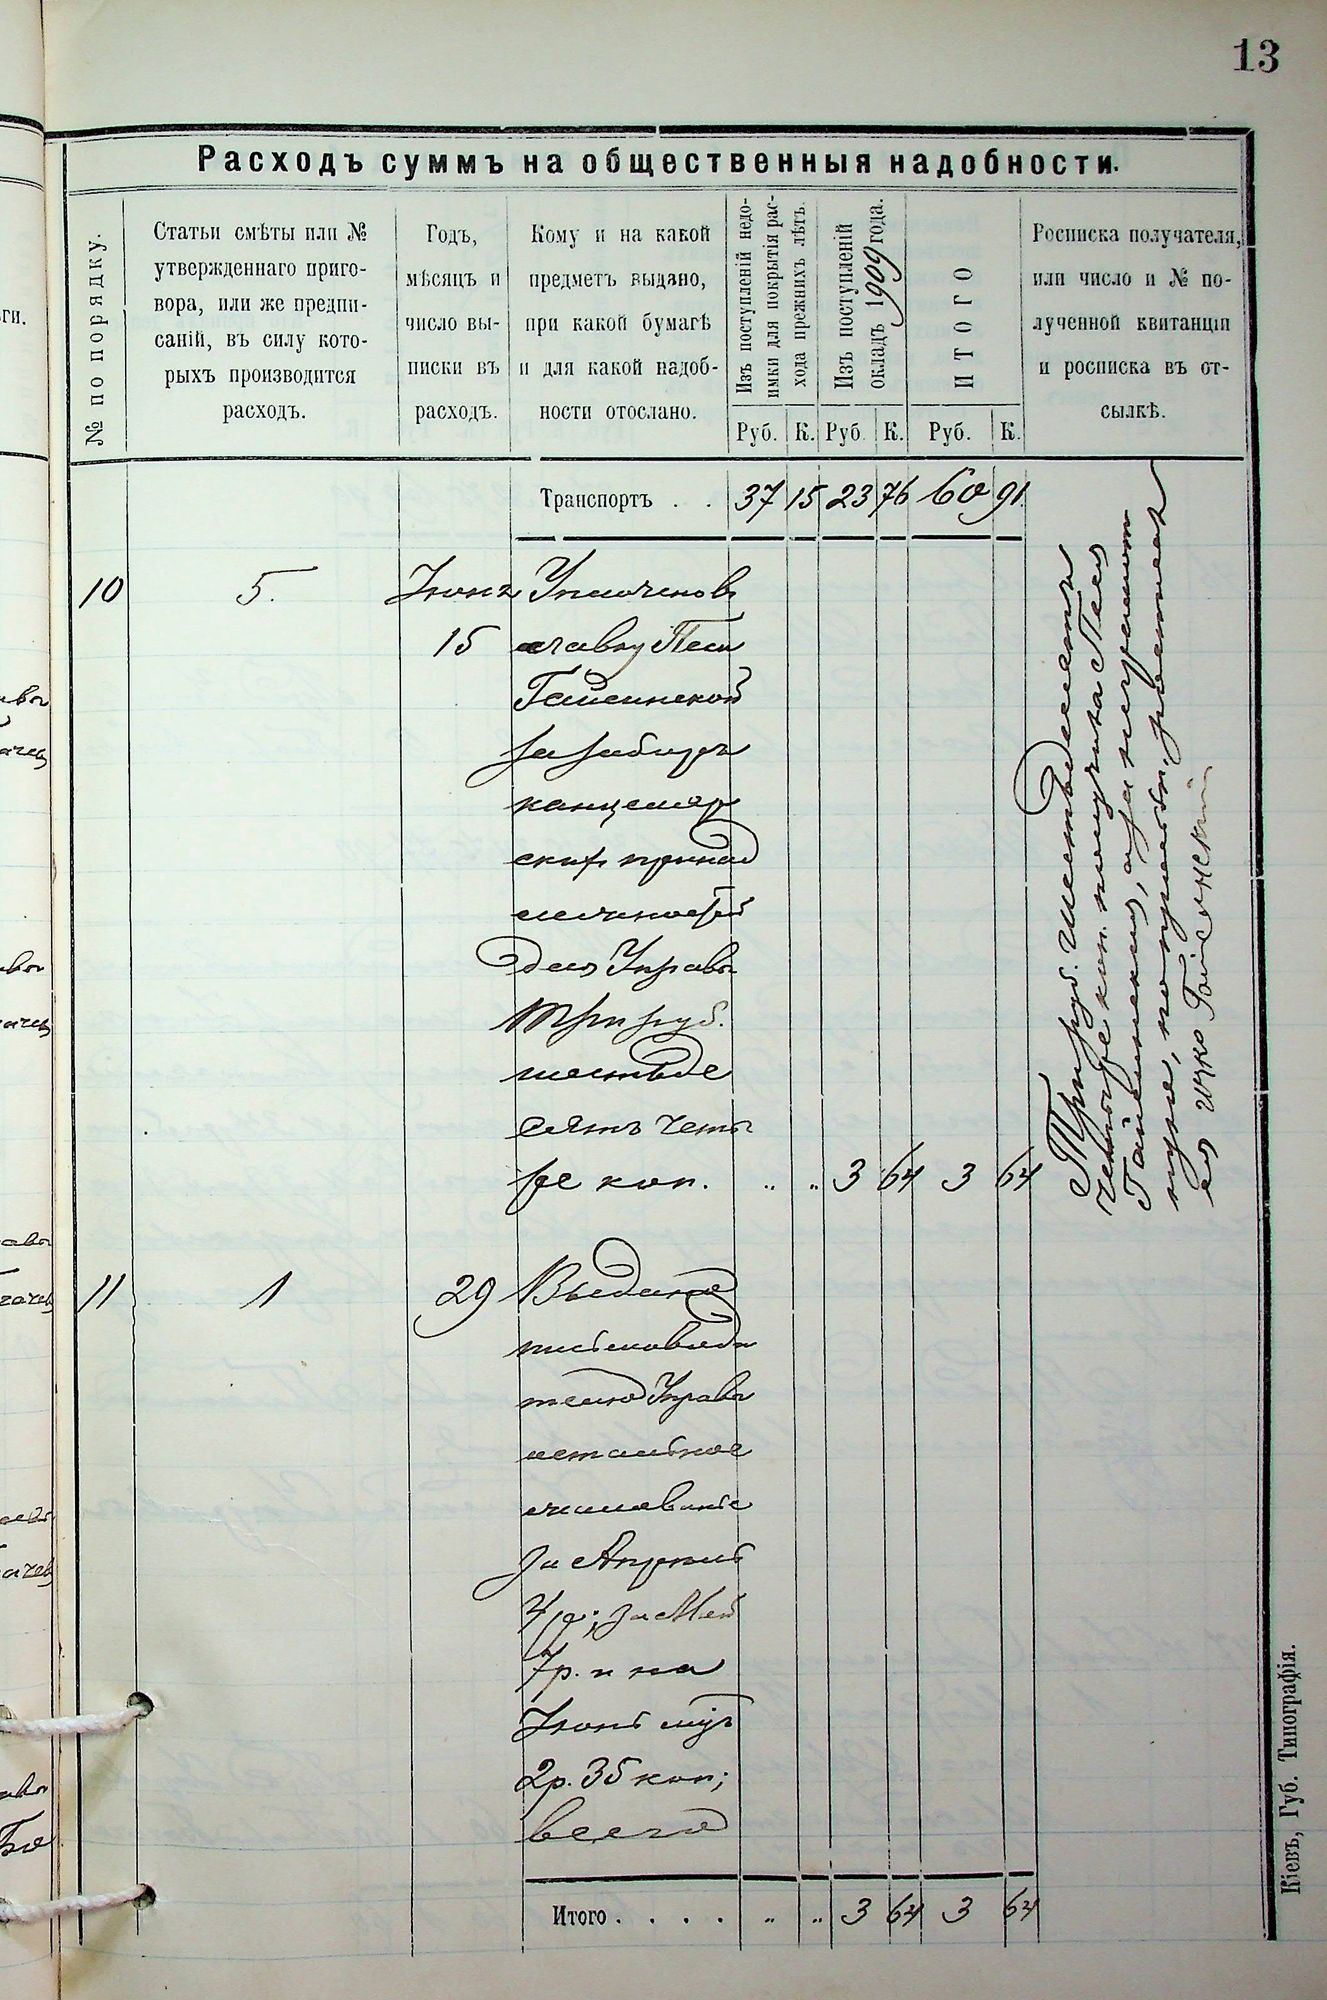 13
Расходъ суммъ на общественныя надобности.
№ по порядку.
Статьи смѣты или №
утвержденнаго приго-
вора, или же предпи-
саній, въ силу кото-
рыхъ производится
расходъ.
Годъ,
мѣсяцъ и
число вы-
писки въ
расходъ.
Кому и на какой
предметъ выдано,
при какой бумагѣ
и для какой надоб-
ности отослано.
Изъ поступленій недо-
имки для покрытія рас-
хода прежнихъ лѣтъ.
Изъ поступленій
окладъ 1909 года.
ИТОГО
Росписка получателя,
или число и № по-
лученной квитанціи
и росписка въ от-
сылкѣ.
Руб. К. Руб. К. Руб. К.
Транспортъ . . 37 15 23 76 60 91
10 5. Іюня Уплочено въ
15 лавку Песи
Гайсинской
за забиръ
канцеляр
скихъ принад
лежностей
для Управы
три руб.
шестьде
сятъ четы
ре коп. „ „ 3 64 3 64
Три руб. шестьдесятъ
четыре коп. получила Песя
Гайсинская, а за неграмот
ную, по просьбѣ, росписался
Ицко Гайсинскій
11 1 29 Выдано
письмоводи
телю Управы
остальное
жалованье
за Апрель
4 р.; за Май
7 р. и на
Іюнь мцъ
2 р. 35 коп;
всего
Итого . . . . „ „ 3 64 3 64
Кіевъ, Губ. Типографія.